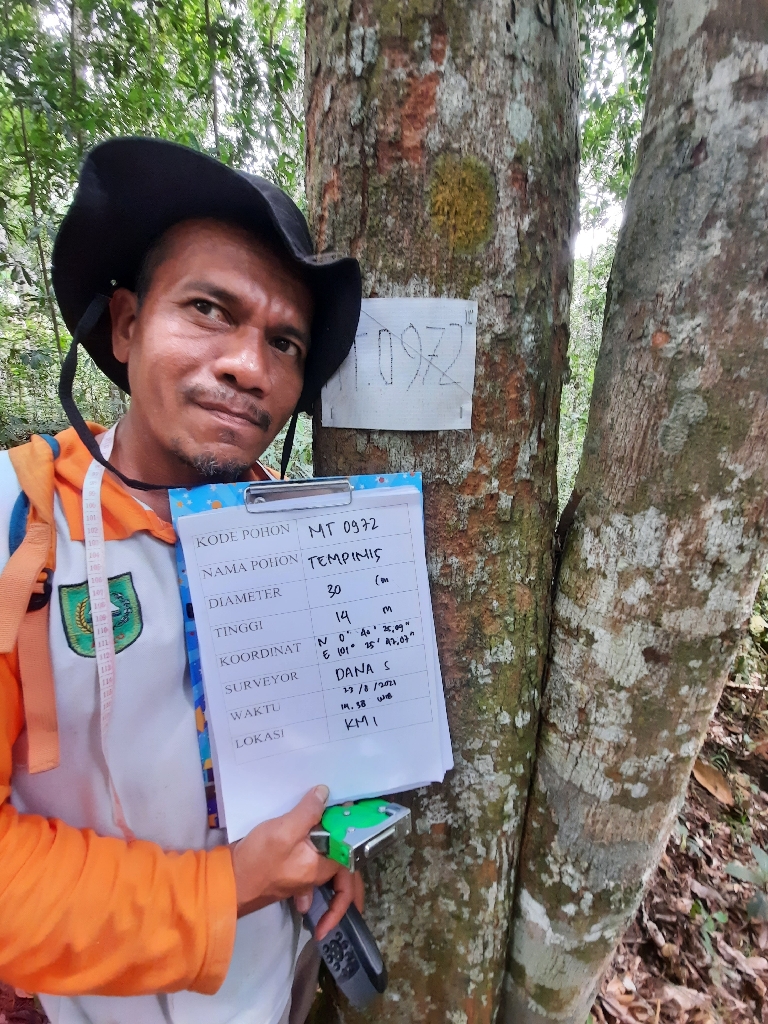 MT.0972
KODE POHON MT 0972
NAMA POHON TEMPINIS
DIAMETER 30 Cm
TINGGI 14 m
KOORDINAT N 0° 40' 25,09"
E 101° 25' 42,07"
SURVEYOR DANA S
WAKTU 23/8/2021
14.58 WIB
LOKASI KM 1